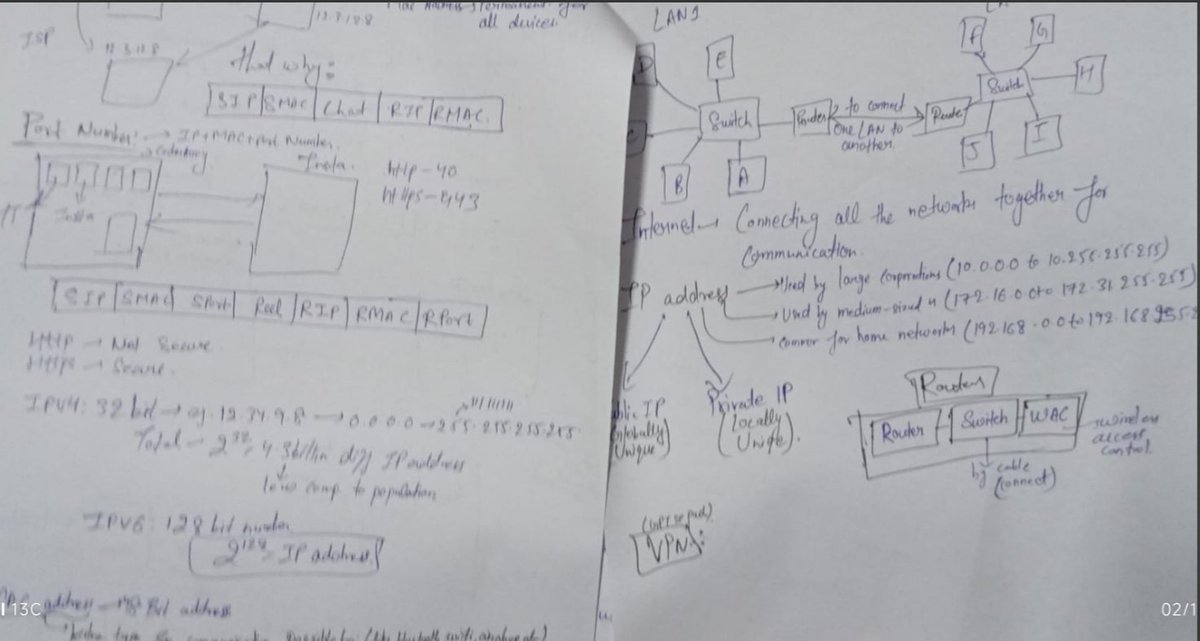 ISP
all devices
that why:
SIP | SMAC | Chat | RIP | RMAC
Port Number: → IP+MAC+Port Number
Insta
http - 40
https - 443
Insta
SIP | SMAC | SPort | Reel | RIP | RMAC | RPort
HTTP → Not Secure
HTTPS → Secure
IPV4: 32 bit → eg: 12.34.9.8 → 0.0.0.0 → 255.255.255.255
Total → 2^32 = 4.3 billion diff IP address
less comp to population
IPV6: 128 bit number
2^128 = IP address
address → 48 Bit address
13C
LAN1
D
E
Switch
B
A
Router
to connect
one LAN to
another.
Router
Switch
F
G
H
I
J
Internet → Connecting all the networks together for
Communication.
IP address → Used by large corporations (10.0.0.0 to 10.255.255.255)
→ Used by medium-sized " (172.16.0.0 to 172.31.255.255)
→ common for home networks (192.168.0.0 to 192.168.255.2
blic IP
(Globally
Unique)
Private IP
(Locally
Unique).
Router
Router
Switch
WAC
access
control.
by cable
(connect)
VPN:
02/1